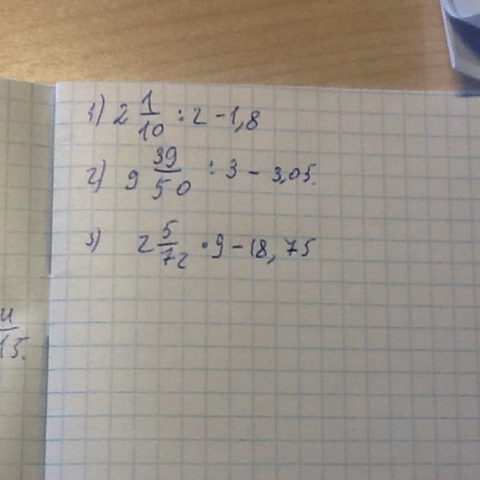 1) 2 1/10 : 2 - 1,8
2) 9 39/50 : 3 - 3,05.
3) 2 5/72 · 9 - 18,75
15.